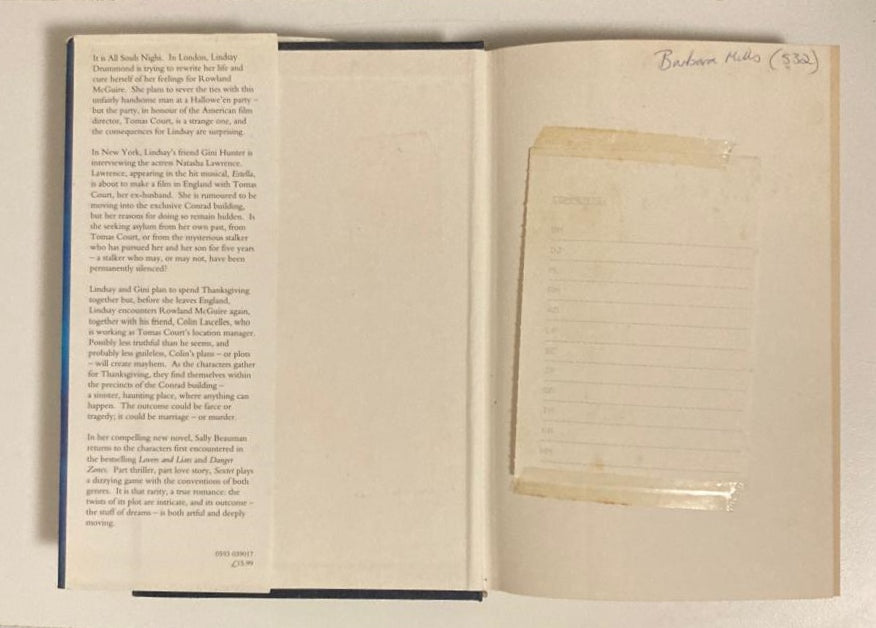 It is All Souls Night. In London, Lindsay
Drummond is trying to rewrite her life and
cure herself of her feelings for Rowland
McGuire. She plans to sever the ties with this
unfairly handsome man at a Hallowe'en party –
but the party, in honour of the American film
director, Tomas Court, is a strange one, and
the consequences for Lindsay are surprising.
In New York, Lindsay's friend Gini Hunter is
interviewing the actress Natasha Lawrence.
Lawrence, appearing in the hit musical, Estella,
is about to make a film in England with Tomas
Court, her ex-husband. She is rumoured to be
moving into the exclusive Conrad building,
but her reasons for doing so remain hidden. Is
she seeking asylum from her own past, from
Tomas Court, or from the mysterious stalker
who has pursued her and her son for five years
– a stalker who may, or may not, have been
permanently silenced?
Lindsay and Gini plan to spend Thanksgiving
together but, before she leaves England,
Lindsay encounters Rowland McGuire again,
together with his friend, Colin Lascelles, who
is working as Tomas Court's location manager.
Possibly less truthful than he seems, and
probably less guileless, Colin's plans – or plots
– will create mayhem. As the characters gather
for Thanksgiving, they find themselves within
the precincts of the Conrad building –
a sinister, haunting place, where anything can
happen. The outcome could be farce or
tragedy; it could be marriage – or murder.
In her compelling new novel, Sally Beauman
returns to the characters first encountered in
the bestselling Lovers and Liars and Danger
Zones. Part thriller, part love story, Sextet plays
a dizzying game with the conventions of both
genres. It is that rarity, a true romance: the
twists of its plot are intricate, and its outcome –
the stuff of dreams – is both artful and deeply
moving.
0593 039017
£15.99
Barbara Mills (532)